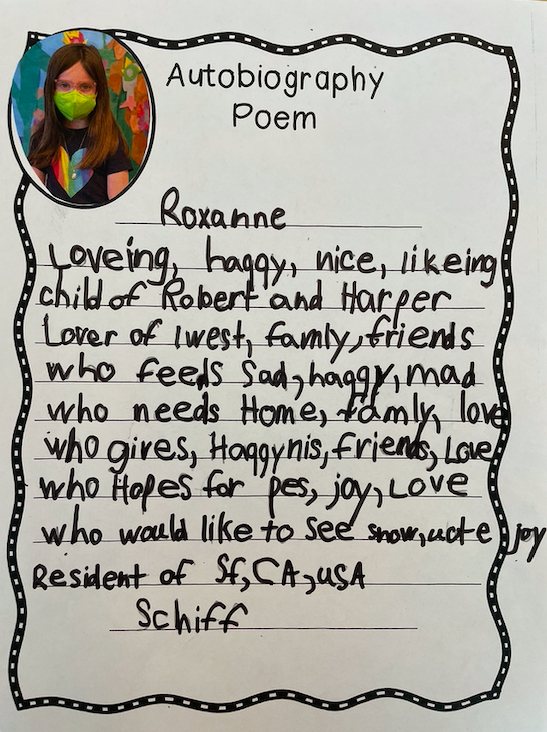 Autobiography
Poem
Roxanne
Loveing, haqqy, nice, likeing
child of Robert and Harper
Lover of 1west, famly, friends
who feeds Sad, haggy, mad
who needs Home, famly, love
who gires, Haggynis, friends, Love
who Hopes for pes, joy, Love
who would like to see snow, ucte joy
Resident of Sf, CA, USA
Schiff